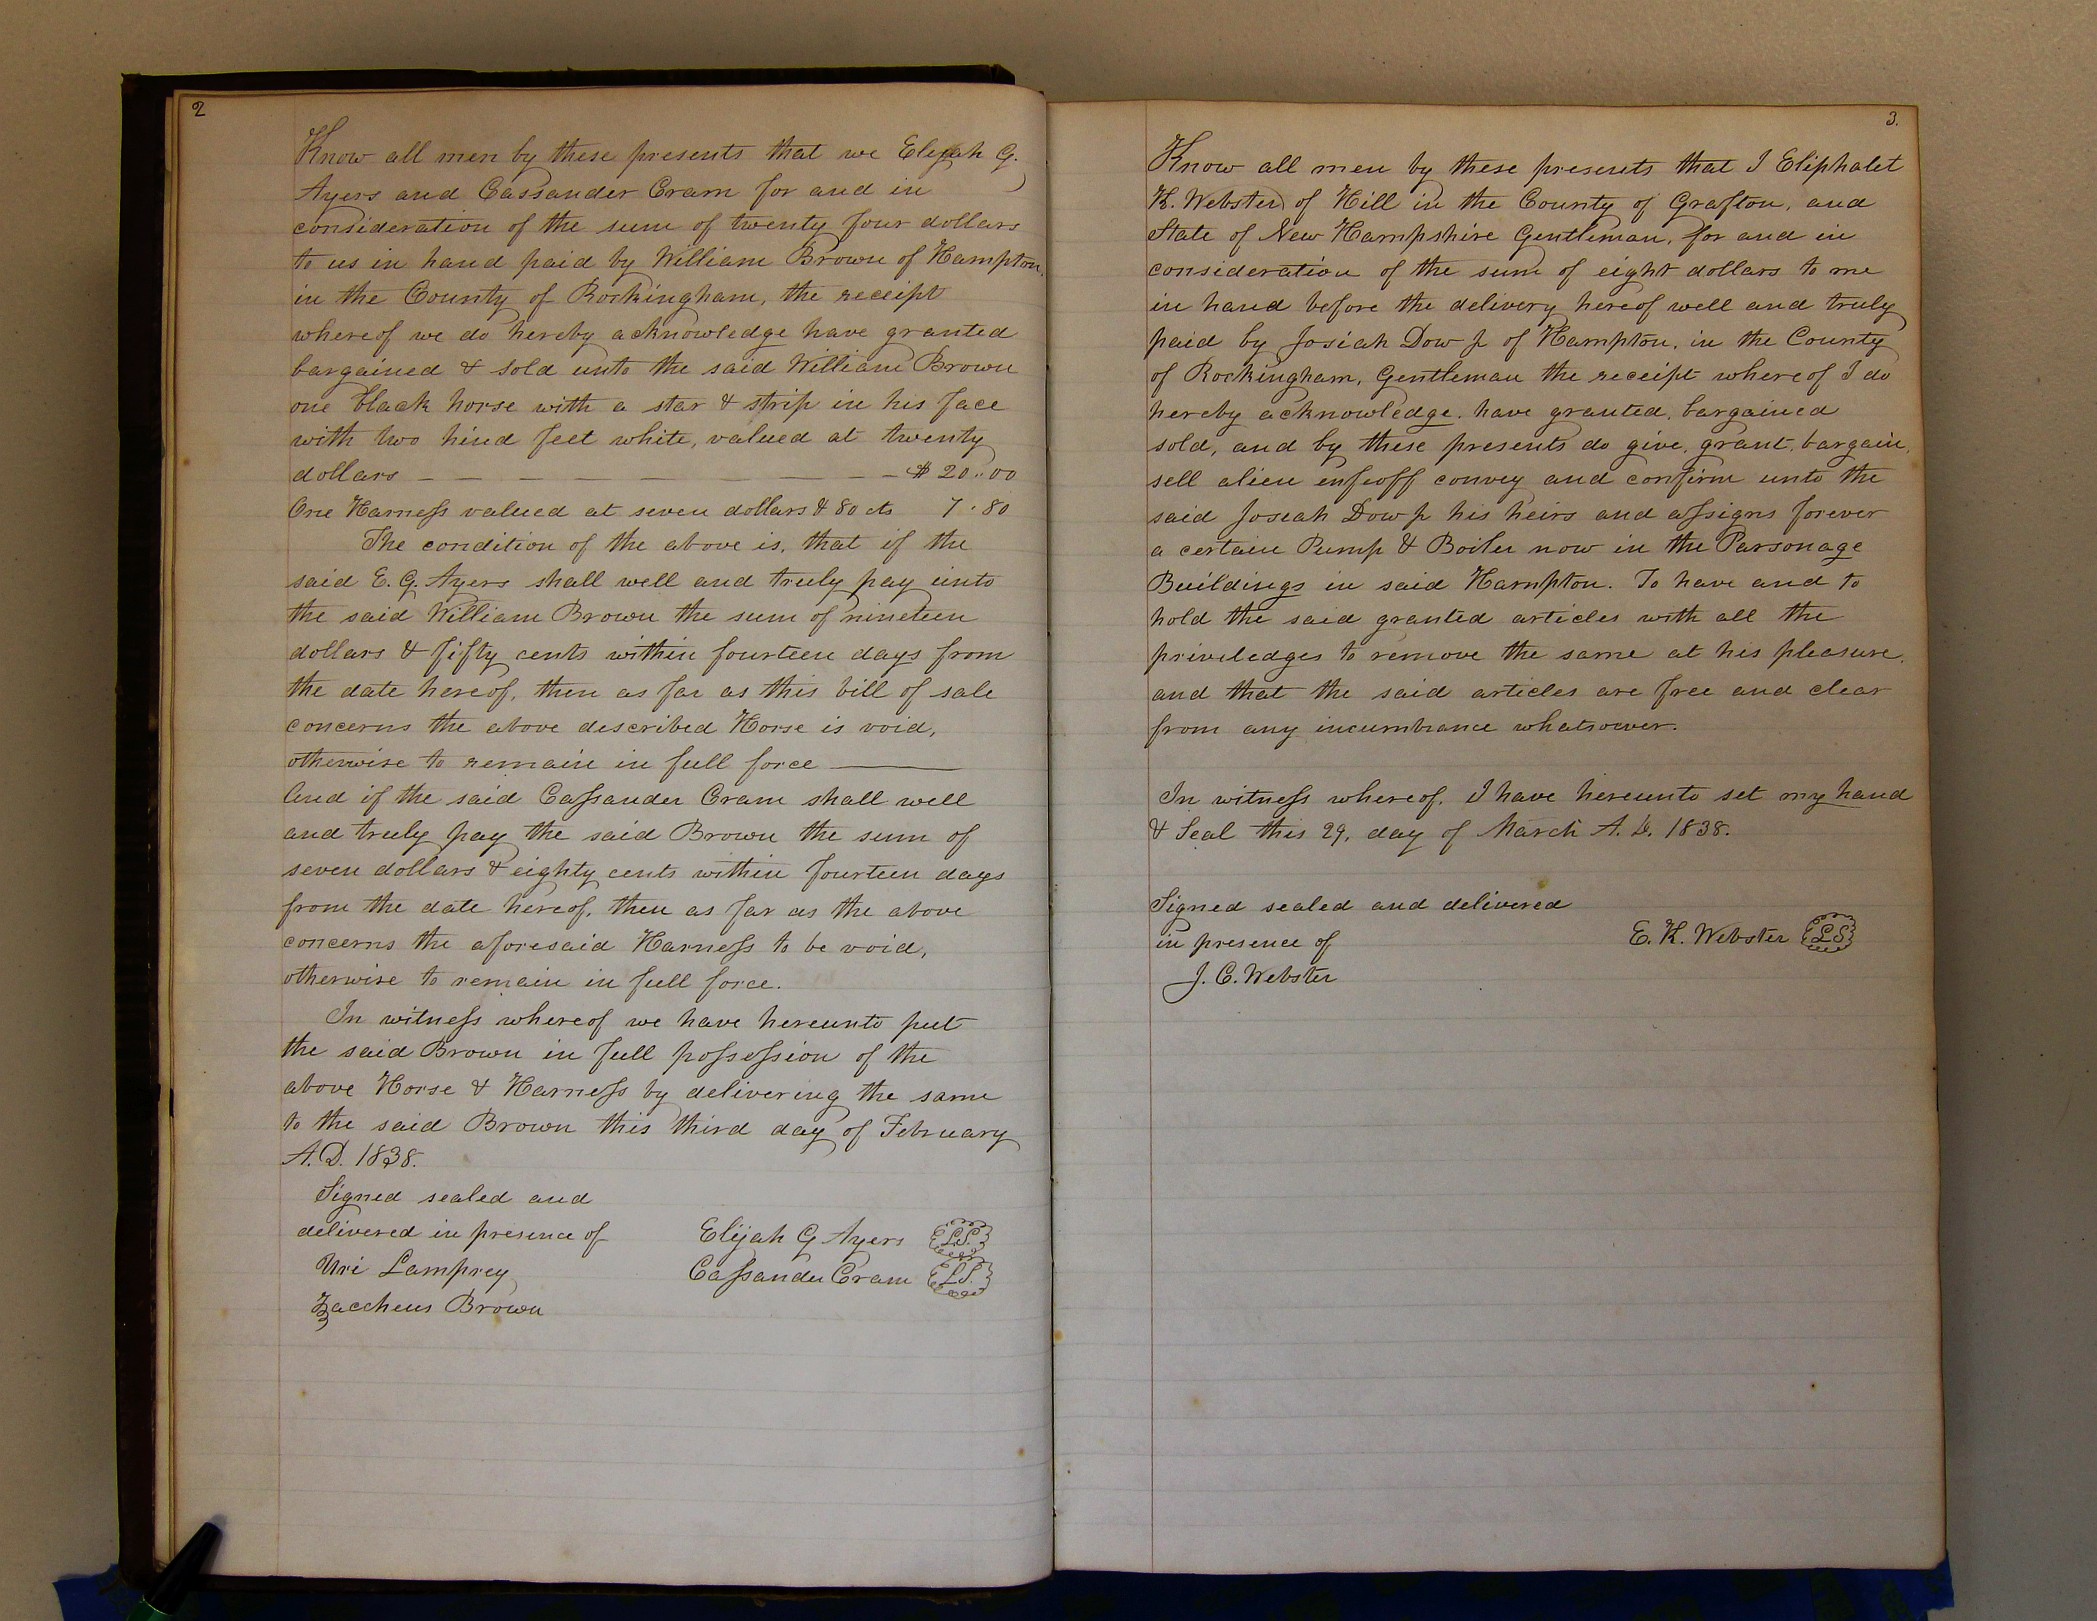 2
Know all men by these presents that we Elijah G.
Ayers and Cassander Cram for and in
consideration of the sum of twenty four dollars
to us in hand paid by William Brown of Hampton
in the County of Rockingham, the receipt
whereof we do hereby acknowledge have granted
bargained & sold unto the said William Brown
one black horse with a star & strip in his face
with two hind feet white, valued at twenty
dollars — — — — — — — — — $ 20..00
One Harness valued at seven dollars & 80 cts 7.80
The condition of the above is, that if the
said E. G. Ayers shall well and truly pay unto
the said William Brown the sum of nineteen
dollars & fifty cents within fourteen days from
the date hereof, then as far as this bill of sale
concerns the above described Horse is void,
otherwise to remain in full force ———
And if the said Cassander Cram shall well
and truly pay the said Brown the sum of
seven dollars & eighty cents within fourteen days
from the date hereof, then as far as the above
concerns the aforesaid Harness to be void,
otherwise to remain in full force.
In witness whereof we have hereunto put
the said Brown in full possession of the
above Horse & Harness by delivering the same
to the said Brown this third day of February
A.D. 1838.
Signed sealed and
delivered in presence of Elijah G Ayers L.S.
Uri Lamprey Cassander Cram L.S.
Zaccheus Brown
3.
Know all men by these presents that I Eliphalet
K. Webster of Hill in the County of Grafton, and
State of New Hampshire Gentleman, for and in
consideration of the sum of eight dollars to me
in hand before the delivery hereof well and truly
paid by Josiah Dow Jr of Hampton, in the County
of Rockingham, Gentleman the receipt whereof I do
hereby acknowledge. have granted, bargained
sold, and by these presents do give, grant, bargain,
sell alien enfeoff convey and confirm unto the
said Josiah Dow Jr his heirs and assigns forever
a certain Pump & Boiler now in the Parsonage
Buildings in said Hampton. To have and to
hold the said granted articles with all the
priviledges to remove the same at his pleasure.
and that the said articles are free and clear
from any incumbrance whatsoever.
In witness whereof, I have hereunto set my hand
& Seal this 29, day of March A. D. 1838.
Signed sealed and delivered
in presence of E. K. Webster L.S.
J. C. Webster